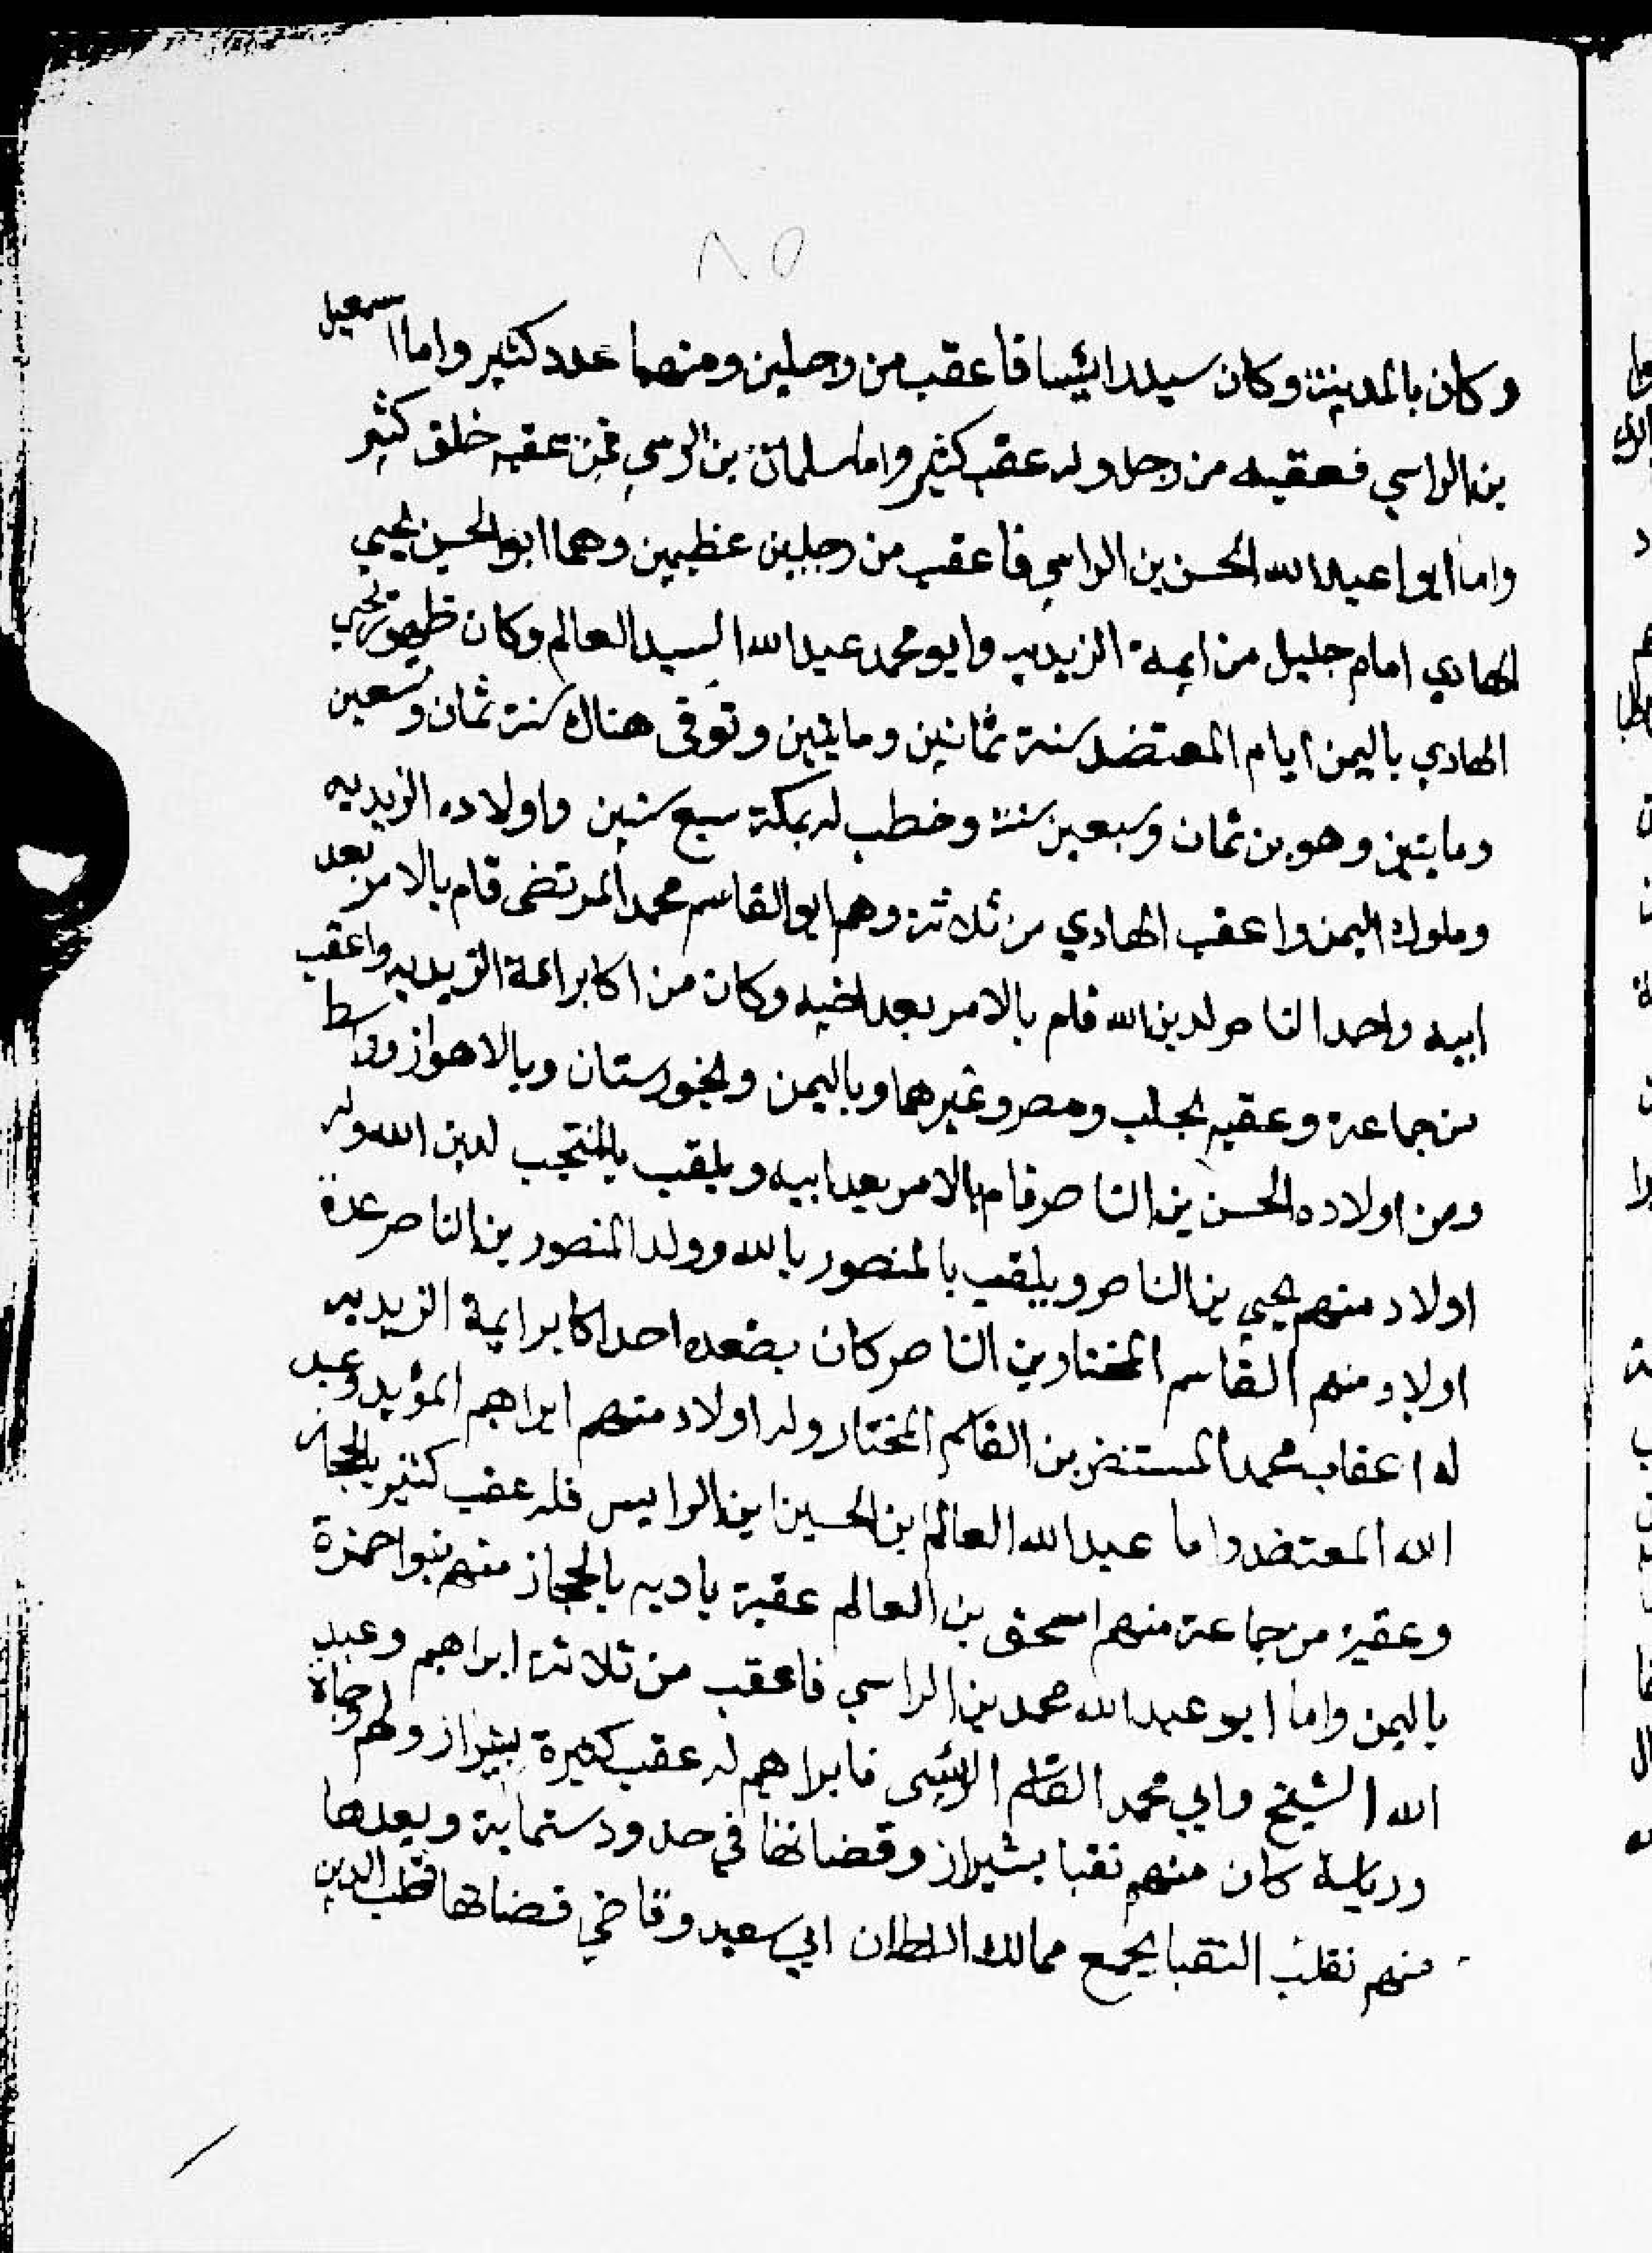 ٨٥
وكان بالمدينة وكان سيدا رئيسا فاعقب من رجلين ومنهما عدد كثير واما اسمعيل
بن الراسي فعقبه من رجل وله عقب كثير واما سلمان بن الرسي فمن عقبه خلق كثير
واما ابوا عبد الله الحسن بن الراسي فاعقب من رجلين عظيمين وهما ابو الحسن يحيي
الهادي امام جليل من ايمة الزيديه وابو محمد عبد الله السيد العالم وكان ظهور يحيي
الهادي باليمن ايام المعتضد سنة ثمانين ومايتين وتوفى هناك سنة ثمان وتسعين
ومايتين وهو بن ثمان وسبعين سنة وخطب له بمكة سبع سنين واولاده الزيديه
وملوك اليمن واعقب الهادي من ثلاثة وهم ابو القاسم محمد المرتضى قام بالامر بعد
ابيه واحمد الناصر لدين الله قام بالامر بعد اخيه وكان من اكابر ائمة الزيديه واعقب
من جماعة وعقبه بحلب ومصر وغيرهما وباليمن وبخورستان وبالاهواز وواسط
ومن اولاده الحسن بن الناصر قام بالامر بعد ابيه ويلقب بالمنتجب لدين الله وله
اولاد منهم يحيي بن الناصر ويلقب بالمنصور بالله وولد المنصور بن الناصر عدة
اولاد منهم القاسم المختار بن الناصر كان بصعده احد اكابر ايمة الزيديه
له اعقاب محمد المستنصر بن القاسم المختار وله اولاد منهم ابراهيم المؤيد وعبد
الله المعتضد واما عبد الله العالم بن الحسين ابن الرايس فله عقب كثير بالحجاز
وعقبه من جماعة منهم اسحق بن العالم عقبة باديه بالحجاز منهم بنوا حمزة
باليمن واما ابو عبد الله محمد بن الراسي فاعقب من ثلاثة ابراهيم وعبد
الله الشيخ وابي محمد القاسم الرئيسى فابراهيم له عقب كثيرة بشيراز ولهم وجاه
ورياسة كان منهم نقبا بشيراز وقضاتها في حدود ستماية وبعدها
منهم نقلب النقبا بجمع ممالك السلطان ابي سعيد وقاضي قضاتها قطب الدين